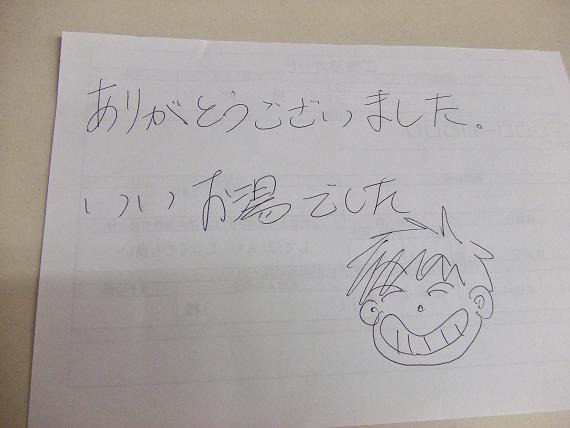 ありがとうございました。
いいお湯でした